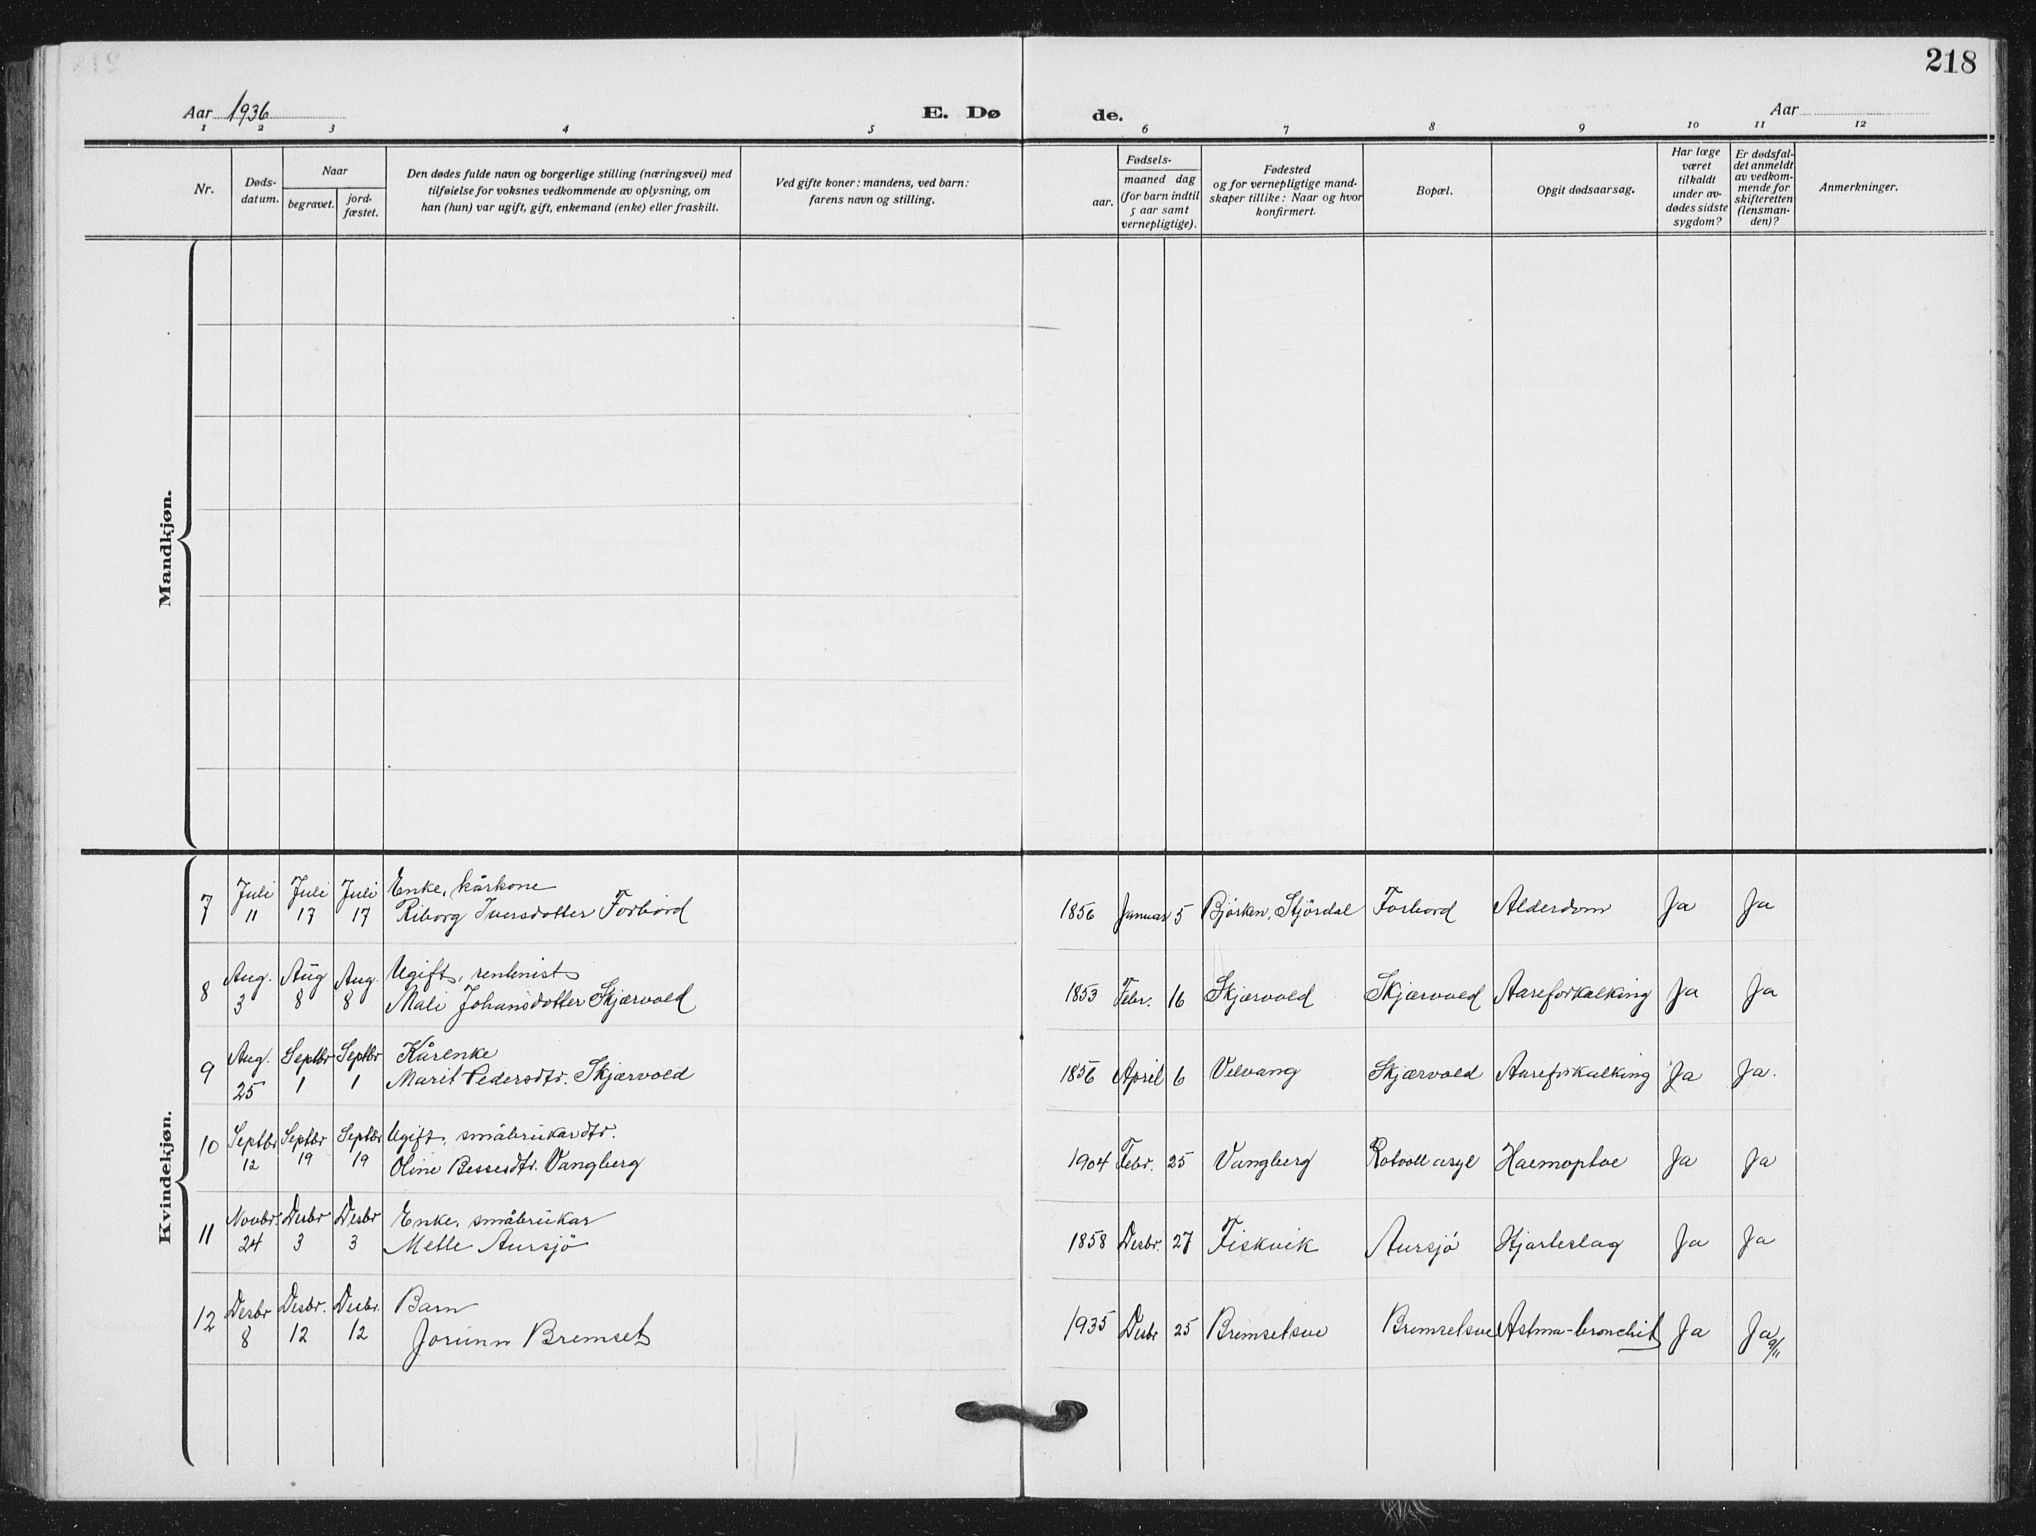 218
Aar 1936
E. Dø
de.
Aar
1 2 3 4 5 6 7 8 9 10 11 12
Nr.
Døds-
datum.
Naar
begravet.
jord-
fæstet.
Den dødes fulde navn og borgerlige stilling (næringsvei) med
tilføielse for voksnes vedkommende av oplysning, om
han (hun) var ugift, gift, enkemand (enke) eller fraskilt.
Ved gifte koner: mandens, ved barn:
farens navn og stilling.
Fødsels-
aar.
maaned dag
(for barn indtil
5 aar samt
vernepligtige).
Fødested
og for vernepligtige mand-
skaper tillike: Naar og hvor
konfirmert.
Bopæl.
Opgit dødsaarsag.
Har læge
været
tilkaldt
under av-
dødes sidste
sygdom?
Er dødsfal-
det anmeldt
av vedkom-
mende for
skifteretten
(lensman-
den)?
Anmerkninger.
Mandkjøn.
Kvindekjøn.
7 Juli 11 Juli 17 Juli 17 Enke, kårkone
Riborg Iversdotter Forbord 1856 Januar 5 Bjørken, Stjørdal Forbord Alderdom Ja Ja
8 Aug. 3 Aug 8 Aug. 8 Ugift, rentenist
Mali Johansdotter Skjærvold 1853 Febr. 16 Skjærvold Skjærvold Aareforkalking Ja Ja
9 Aug. 25 Septbr 1 Septbr 1 Kårenke
Marit Pedersdtr. Skjærvold 1856 April 6 Velvang Skjærvold Aareforkalking Ja Ja.
10 Septbr 12 Septbr 19 Septbr 19 Ugift, småbrukardtr.
Oline Bessesdtr. Vangberg 1904 Febr. 25 Vangberg Rotvoll asyl Haemoptoe Ja Ja
11 Novbr. 24 Desbr 3 Desbr 3 Enke, småbrukar
Mette Aursjö 1858 Desbr. 27 Fiskvik Aursjó Hjarteslag Ja Ja
12 Desbr 8 Desbr. 12 Desbr. 12 Barn
Jorunn Bremset 1935 Desbr 25 Bremsetsve Bremsetsve Astma-bronchit Ja Ja 9/11